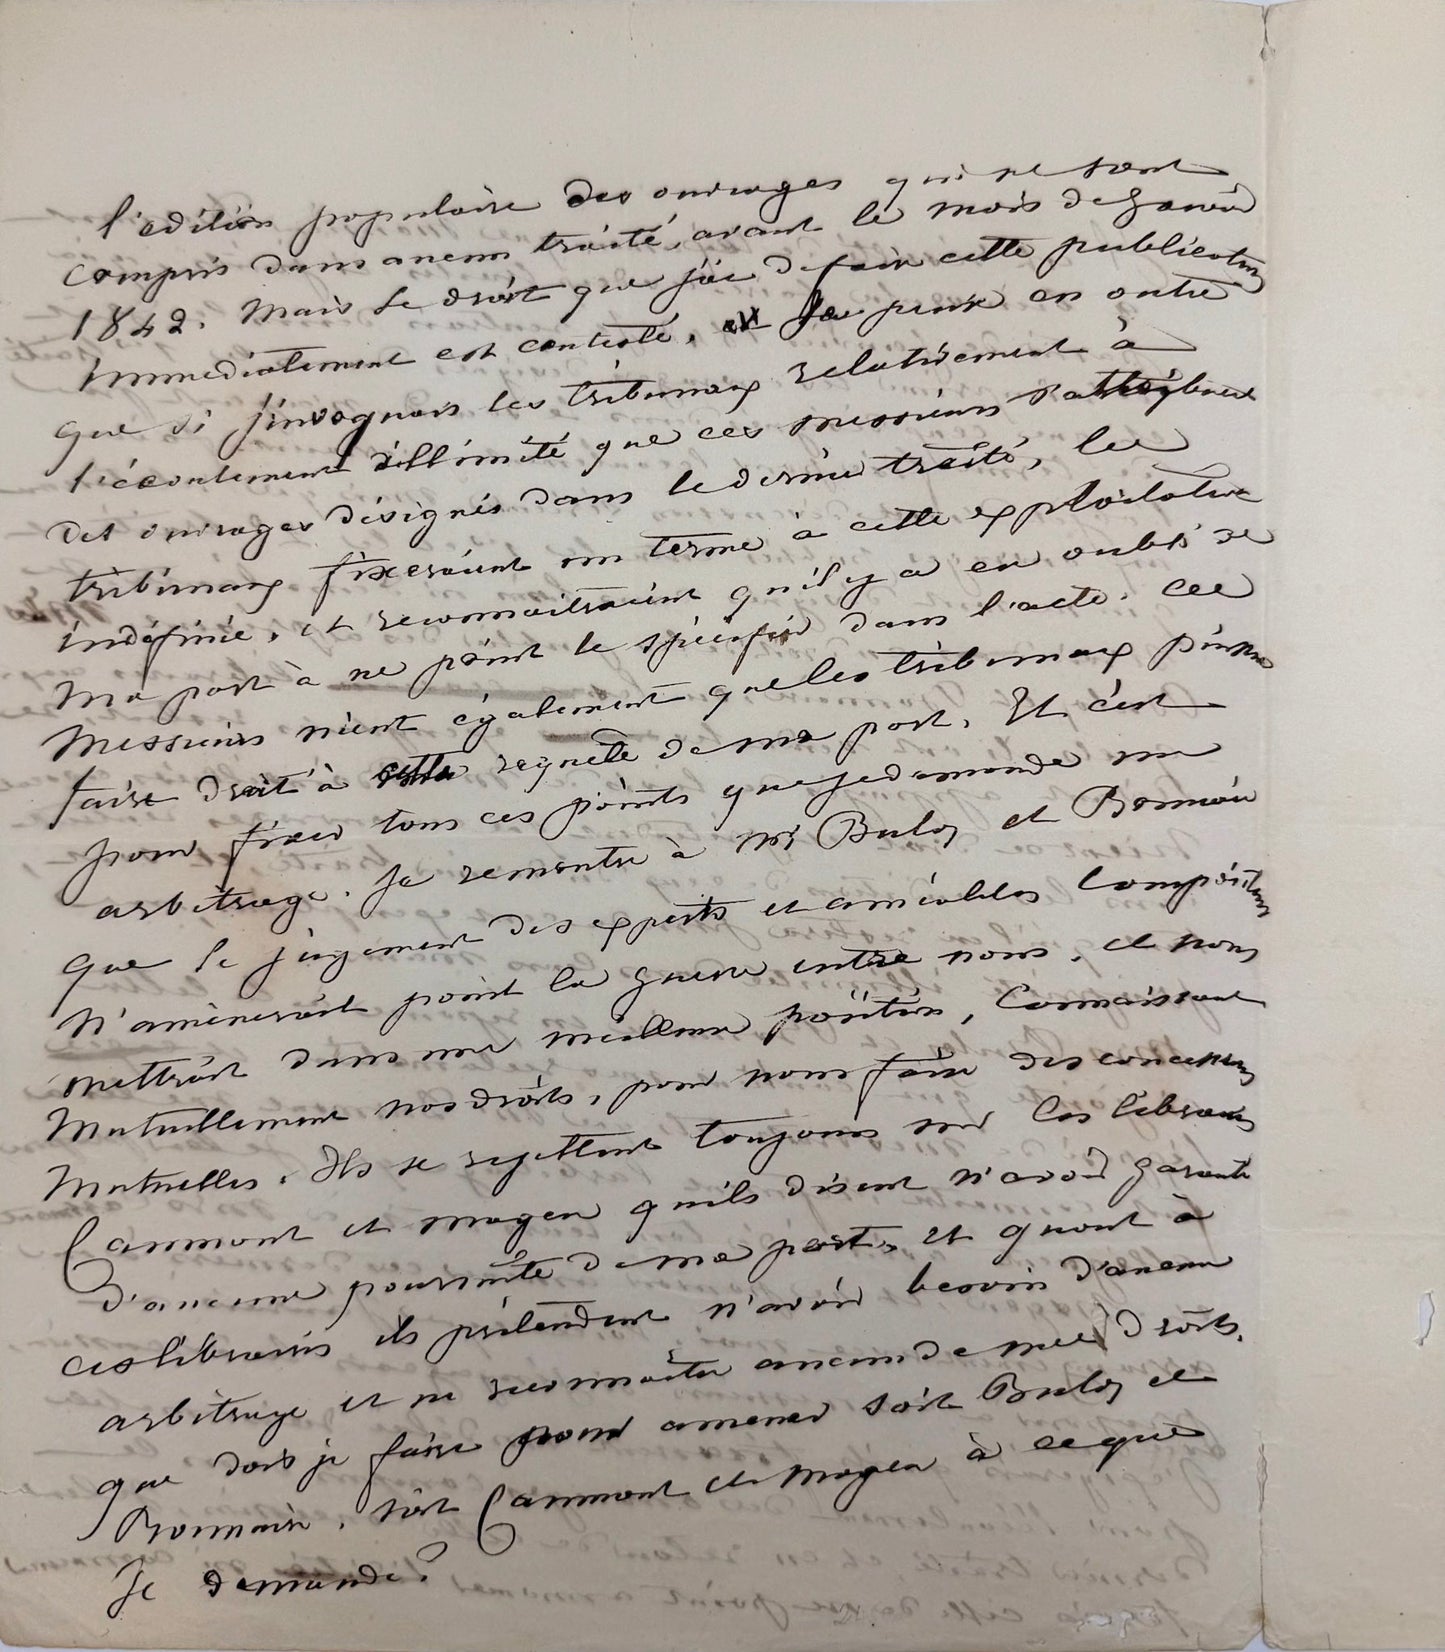 l'edition populaire des ouvrages qui ne sont
compris dans aucun traité, avant le mois de Janvier
1842. Mais le droit que j'ai de faire cette publication
immediatement est contesté, et je pense en outre
que si j'invoquais les tribunaux relativement à
l'écoulement illimité que ces messieurs s'attribuent
des ouvrages désignés dans le dernier traité, les
tribunaux fixeraient un terme à cette exploitation
indéfinie, et reconnaitraient qu'il y a eu oubli de
ma part à ne point le spécifier dans l'acte. Ces
Messieurs nient également que les tribunaux puissent
faire droit à cette requête de ma part. Et c'est
pour fixer tous ces points que je demande un
arbitrage. Je remontre à Mrs Buloz et Bonnaire
que le jugement des experts et amiables compositeurs
n'amènerait point la guerre entre nous, et nous
mettrait dans une meilleure position, Connaissant
Mutuellement nos droits, pour nous faire des concessions
Mutuelles. Ils se rejettent toujours sur les libraires
Canmont et Magen qu'ils disent n'avoir garantis
d'aucune poursuite de ma part, et quant à
ces libraires ils prétendent n'avoir besoin d'aucun
arbitrage et ne reconnaître aucun de mes droits.
que dois je faire pour amener soit Buloz et
Bonnaire, soit Canmont et Magen à ce que
Je demande?